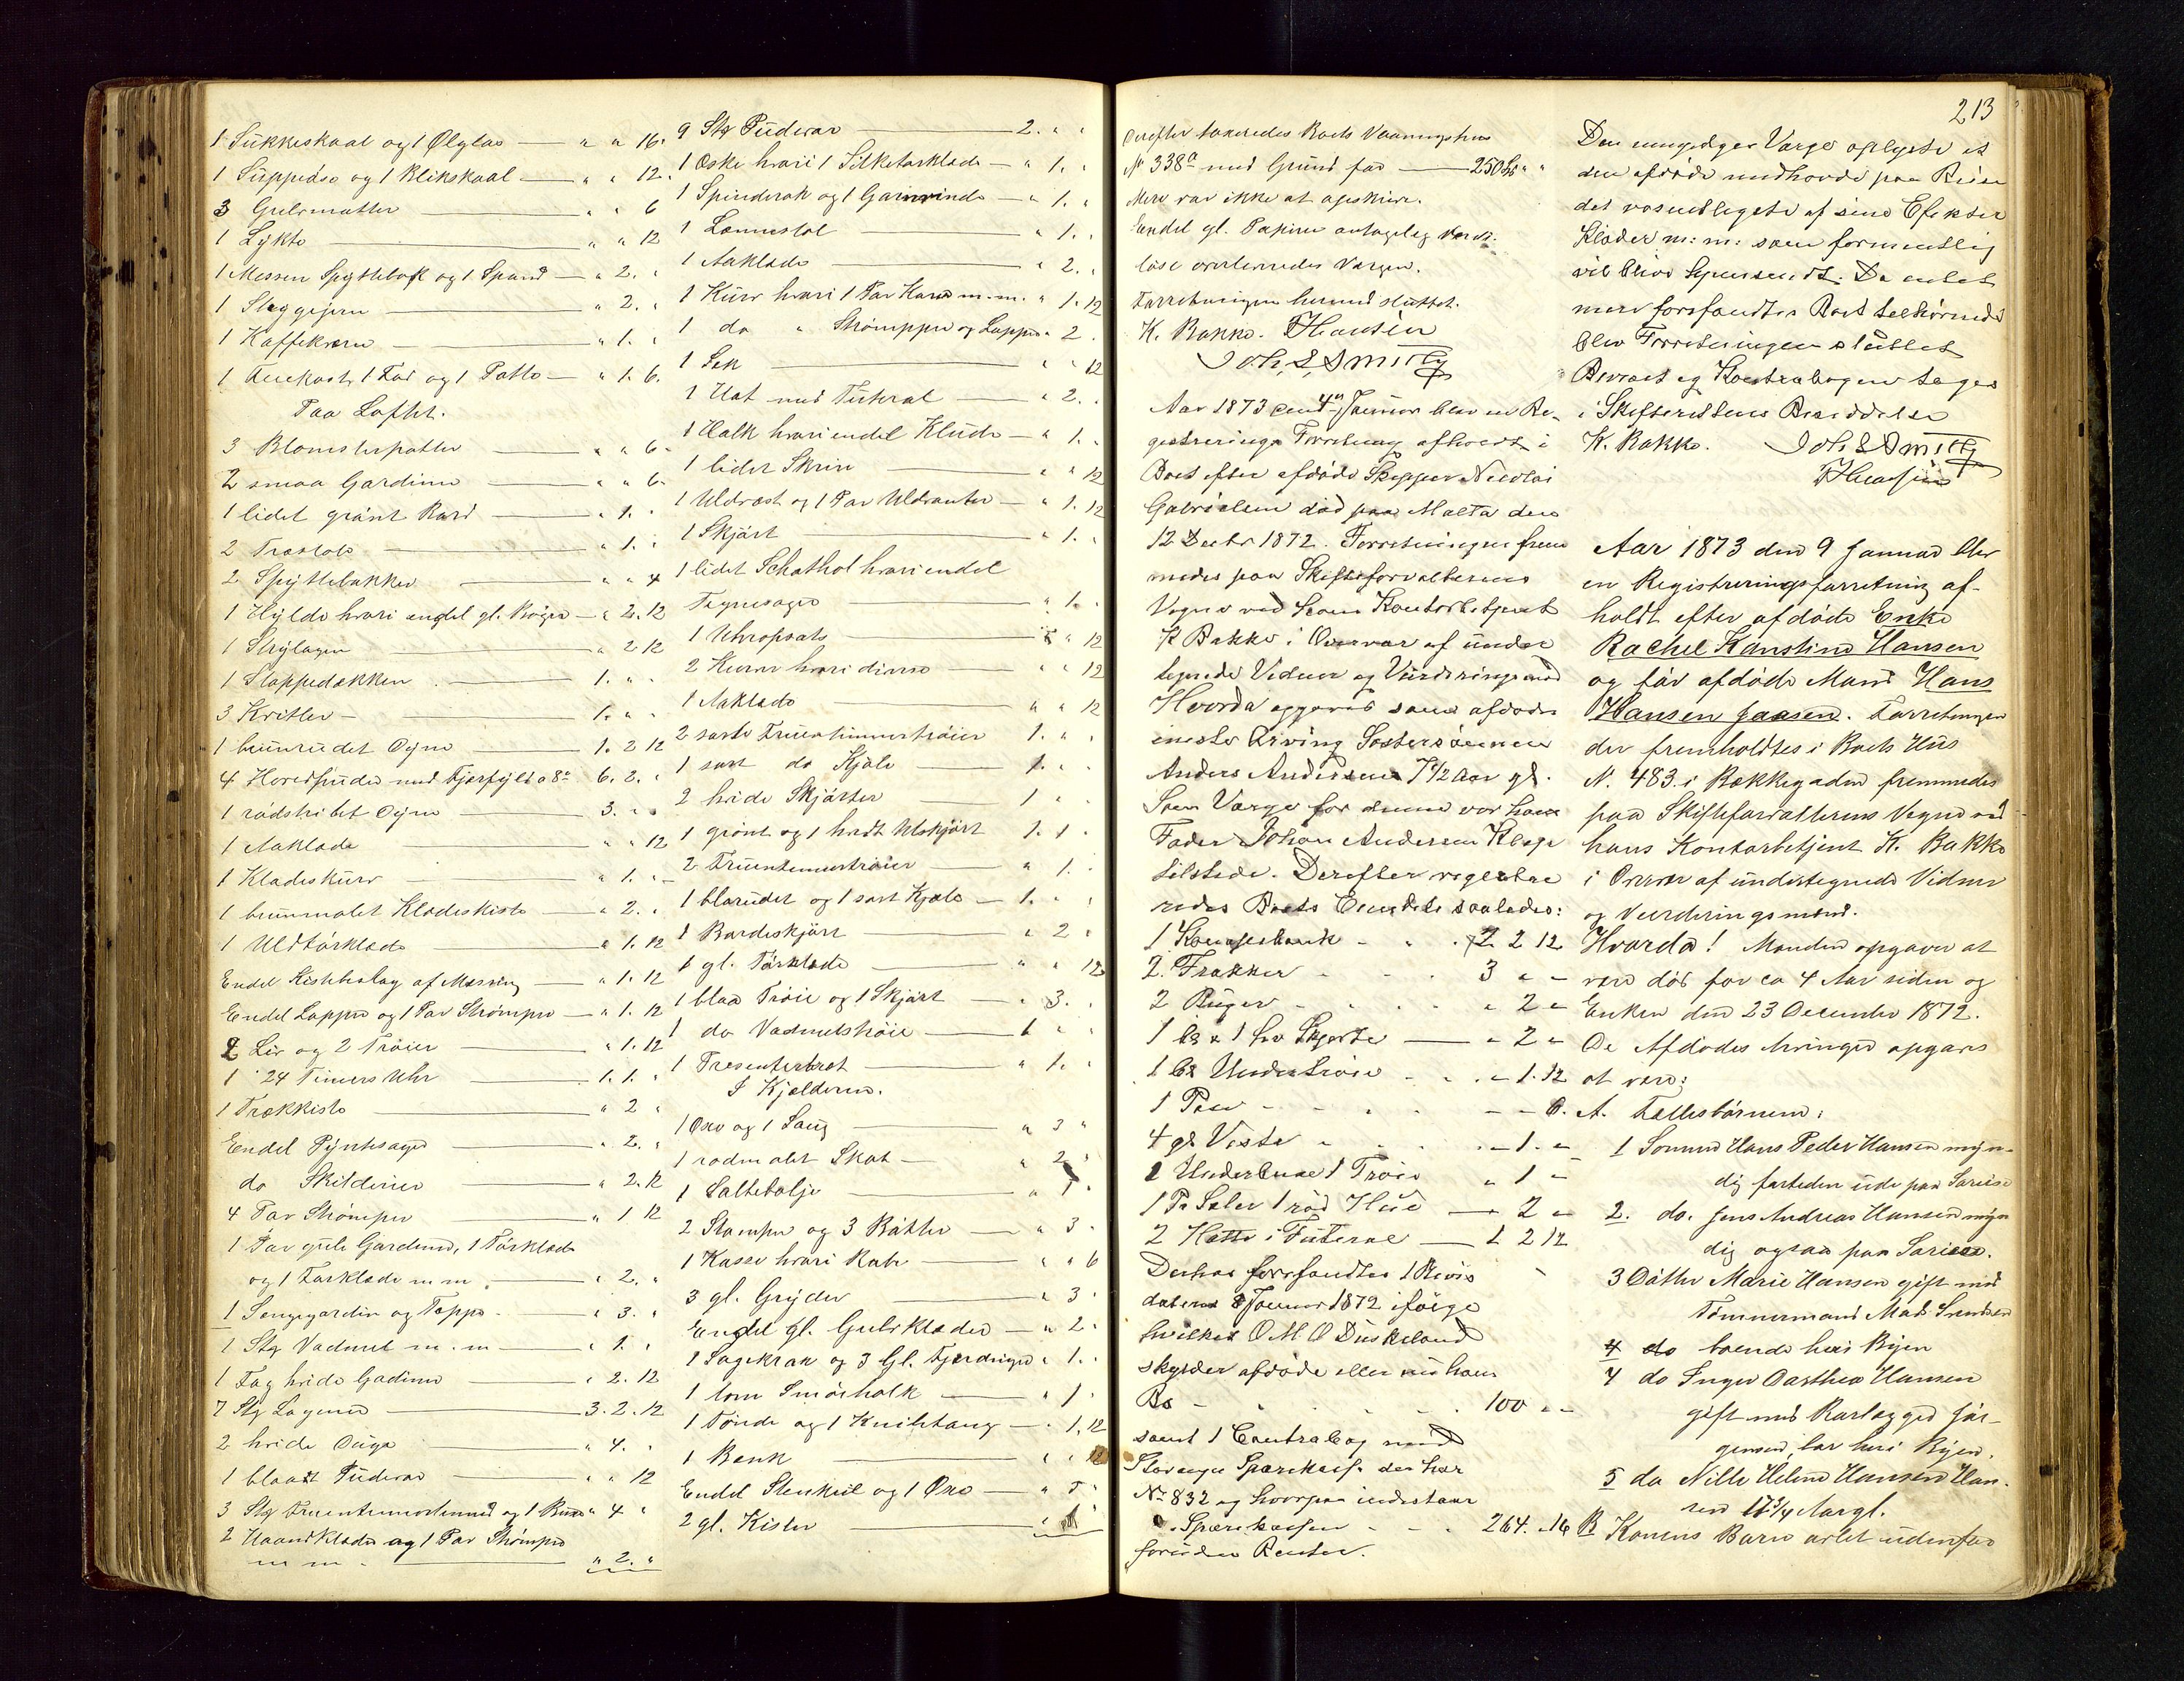 1 Sukkeskaal og 1 Ølglas — " " 16.
1 Suppeöse og 1 Blikskaal — " " 12.
3 Gulvmatter " " 6
1 Lÿkte — " " 12
1 Messen Spÿttebak og 1 Spand — " 2. "
1 Stryggejern — " 2. "
1 Kaffekværn — " 1. "
1 Feiekost, 1 Fad og 1 Potte — " 1. 6.
Paa Loftet.
3 Blomsterpotter — " " 6 "
2 smaa Gardiner — " " 6.
1 lidet grönt Bord — " 1. "
2 Træstole — " 1. "
2 Spÿttebakker — " " 4
1 Hÿlde hvori endel gl. Böger — " 2. 12
1 Strÿlagen — " 2 12
1 Stoppedækken — 1. " "
3 Kvitler — 1. " "
1 brunrudet Dÿne — 1. 2 12
4 Hovedpuder med Fjærfÿld a 8 — 6. 2. "
1 rödstribet Dÿne — 3. " "
1 Aaklæde " " 12
1 Klædeskurv — " 1. "
1 brunmalet Klædeskiste — " 2. "
1 Uldtörklæde " 1. 12
Endel Kistebeslag af Messing — " 1. 12
Endel Lapper og 1 Par Strömper — " 1. 12
2 Liv og 2 Tröier — " 1. 12
1 24 Timers Uhr — 1. 1. "
1 Trækkiste — " 2 "
Endel Pÿntesager — " 2. "
do Skilderier — " 2. 12
4 Par Strömper — " 1 12
1 Par gule Gardiner, 1 Törklæde
og 1 Forklæde m m — " 2. "
1 Sengegardin og Teppe — " 3. "
1 Stk Vadmel m. m — " 1. "
1 Fag hvide Gadiner — " 2. 12
7 Stk Lagener — 3. 2. 12
2 hvide Duge — " 4. "
1 blaat Pudevar — " " 12
3 Stk Fruentimmerlinned og 1 Buxe " 4 "
2 Haandklæder og 1 Par Strömper
m m — " 2. "
9 Stk Pudevar — 2. " "
1 Æske hvori 1 Silketörklæde — " 1. "
1 Spinderok og 1 Garnvinde — " 1. "
1 Lænnestol — " 1. "
1 Aaklæde — " 2. "
1 Kurv hvori 1 Par Karder m. m. " 1. 12
1 do " Strömpper og Lapper " 2.
1 Sek — " " 12
1 Hat med Futeral — " 2. "
1 Holk hvori endel Klude — " 1. "
1 lidet Skrin — " " 12
1 Uldvest og 1 Par Uldvanter — " 1. 12
1 Skjört — " 1. "
1 lidet Schathol hvori endel
Tegnesager — " 1. "
1 Uhropsats — " " 12
2 Kurve hvori diverse — " " 12
1 Aaklæde — " " 12
2 sorte Fruentimmertröier 1. " "
1 sort do Kjole — 1. " "
2 hvide Skjörter — 1 " "
1 grönt og 1 hvidt Ulskjört 1. 1 "
2 Fruentimmertröier — " 1. "
1 blaarudet og 1 sort Kjole — 1. " "
1 Bordeskjört — " 2 "
1 gl. Törklæde — " " 12
1 blaa Tröie og 1 Skjört — " 3. "
1 do Vadmelströie — 1 " "
1 Presenterbret — " 1. "
I Kjælderen.
1 Öxe og 1 Saug — " 3 "
1 rödmalet Skab — " 2 "
1 Saltebalje — " 1 "
2 Stamper og 3 Bötter — " 3 "
1 Kasse hvori Rab — " " 6
3 gl. Grÿder — " 3 "
Endel gl. Gulvklæder — " 2 "
1 Sagekrak og 3 Gl. Fjerdinger " 1. "
1 tom Smörholk — " 1 "
1 Tönde og 1 Knibtang — " 1. 12
1 Bænk — " " 12
Endel Stenkul og 1 Øxe — " 5 "
2 gl. Kister — " 1 "
derefter taxeredes Boets Vaaningshus
No 338a med Grund for — 250 Sp " "
Mere var ikke at opskrive.
Endel gl. Papirer antagelig værdi-
löse overleveredes Værgen.
Forretningen hermed sluttet.
K. Bakke. THansen
Joh. S. Smith
Aar 1873 den 4de Januar blev en Re-
gistrerings Forretning afholdt i
Boet efter afdöde Skipper Nicolai
Gabrielsen död paa Malta den
12 Decbr 1872. Forretningen frem
medes paa Skifteforvalterens
Vegne ved hans Kontorbetjent
K Bakke i Overvær af under
tegnede Vidner og Vurderingsmænd
Hvorda opgaves som afdödes
eneste Arving Söstersönnen
Anders Andersen 7 1/2 Aar gl.
Som Værge for denne var hans
Fader Johan Andersen Klepe
tilstede. Derefter registre
redes Boets Eiendele saaledes:
1 Kongebænk — 2 2 12
2 Frakker — 3 " "
2 Buxer — " 2 "
1 bl & 1 hv Skjorte — " 2 "
1 bl Undertröie — " 1. 12
1 Pose — " " 6.
4 gl Veste — " 1. "
1 Underbuxe 1 Tröie " 1 "
1 Pr Seler 1 röd Hue — " 2 "
2 Hatte i Futeral — 1 2 12
Derhos forefandtes 1 Bevis
dateret 8 Januar 1872 ifölge
hvilket O M O Duskeland
skylder afdöde eller nu hans
Bo — 100 " "
samt 1 Contrabog med
Stavanger Sparekasse der har
No 832 og hvorpaa indestaar
i Sparekassen — 264. " 16
foruden Renter.
213
Den umyndiges Værge oplyste at
den afdöde medhavde paa Reise
det væsentligste af sine Efekter
Klæder m: m: som formentlig
vil blive hjemsendt. Da intet
mere forefandtes Boet tilhörende
blev Forretningen sluttet
Beviset og Kontrabogen toges
i Skifterettens Besiddelse
K. Bakke. Joh S Smith
THansen
Aar 1873 den 9 Januar blev
en Registreringsforretning af-
holdt efter afdöde Enke
Rachel Kanstine Hansen
og för afdöde Mand Hans
Hansen Jaasen. Forretningen
der fremholdtes i Boets Hus
N. 483. i Bakkegaden fremmedes
paa Skifteforvalterens Vegne ved
hans Kontorbetjent K. Bakke
i Overvær af undertegnede Vidner
og Vurderingsmænd.
Hvorda! Manden opgaves at
være död for ca 4 Aar siden og
Enken den 23 December 1872.
De Afdödes Arvinger opgaves
at være:
A. Fællesbörnene:
1 Sönnen Hans Peder Hansen mÿn-
dig fortiden ude paa Sarise
2. do. Jens Andreas Hansen mÿn
dig ogsaa paa Sariese.
3 Datter Marie Hansen gift med
Tömmermand Mads Svendsen
4 do boende her i Bÿen
4 do Inger Dorthea Hansen
gift med Karl Jör-
gensen bor her i Bÿen.
5 do Nille Heline Hansen Han-
sen 17 3/4 Aargl.
B Konens Barn avlet udenfor